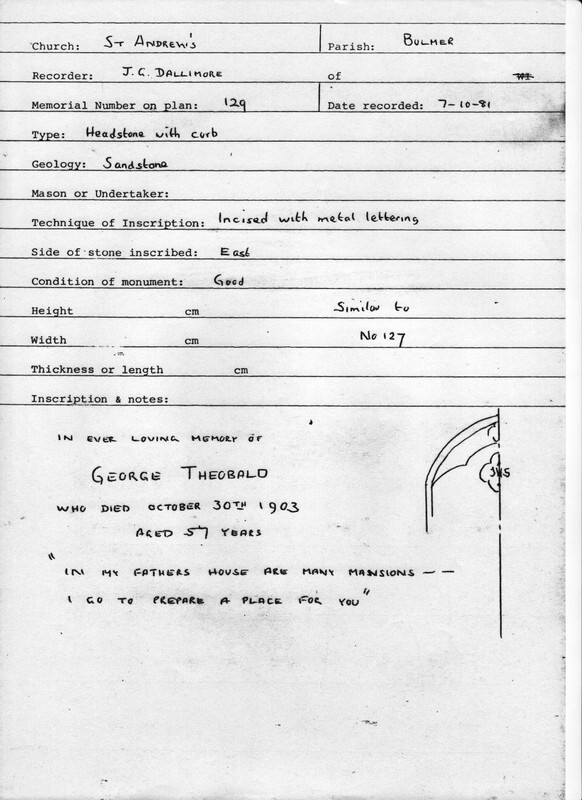 Church: St Andrew's Parish: Bulmer
Recorder: J. C. Dallimore of WI
Memorial Number on plan: 129 Date recorded: 7-10-81
Type: Headstone with curb
Geology: Sandstone
Mason or Undertaker:
Technique of Inscription: Incised with metal lettering
Side of stone inscribed: East
Condition of monument: Good
Height cm Similar to
Width cm No 127
Thickness or length cm
Inscription & notes:
IN EVER LOVING MEMORY OF
GEORGE THEOBALD
WHO DIED OCTOBER 30TH 1903
AGED 57 YEARS
"IN MY FATHERS HOUSE ARE MANY MANSIONS — —
I GO TO PREPARE A PLACE FOR YOU"